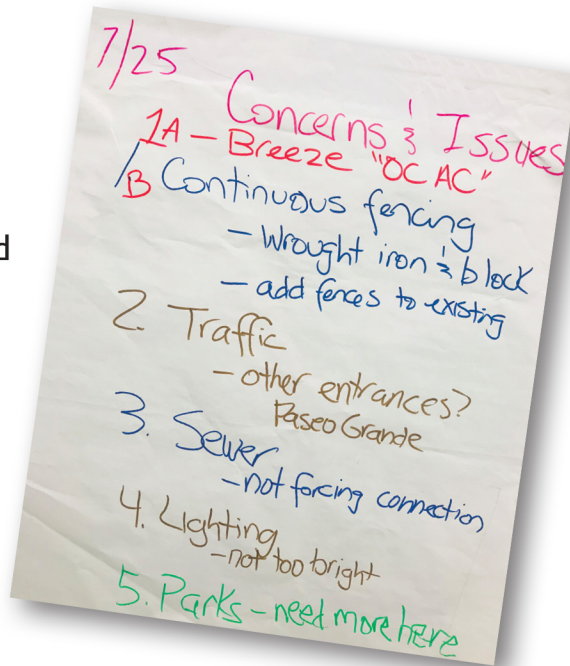 7/25
Concerns & Issues
1A - Breeze "OC AC"
1B Continuous fencing
- Wrought iron & block
- add fences to existing
2. Traffic
- other entrances?
Paseo Grande
3. Sewer
- not forcing connection
4. Lighting
- not too bright
5. Parks - need more here
d